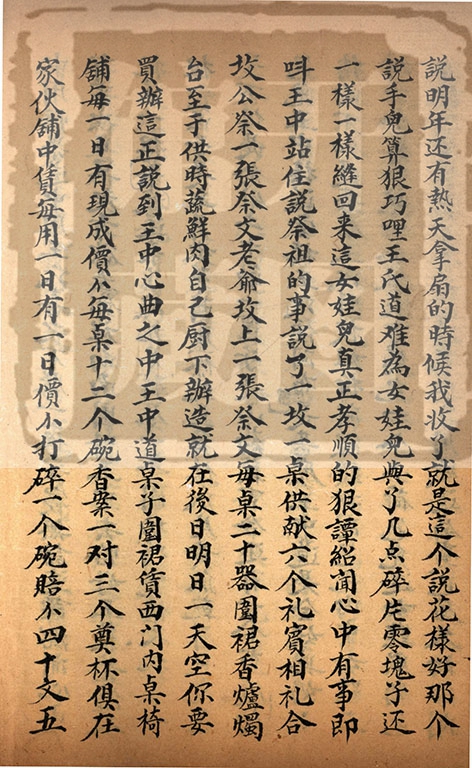 說明年还有熱天拿扇的時候我收了就是這个說花樣好那个
說手兒算狠巧哩王氏道难為女娃兒與了几点碎片零塊子还
一樣一樣縫回来這女娃兒真正孝順的狠譚紹聞心中有事即
呌王中站住説祭祖的事説了一坟一桌供献六个礼賓相礼合
坟公祭一張祭文老爺坟上一張祭文每桌二十器圍裙香爐燭
台至于供時蔬鮮肉自己厨下辦造就在後日明日一天空你要
買辦這正説到王中心曲之中王中道桌子圍裙賃西门内桌椅
舖每一日有現成價小每桌十二个碗香案一对三个奠杯俱在
家伙舖中賃每用一日有一日價小打碎一个碗賠小四十文五